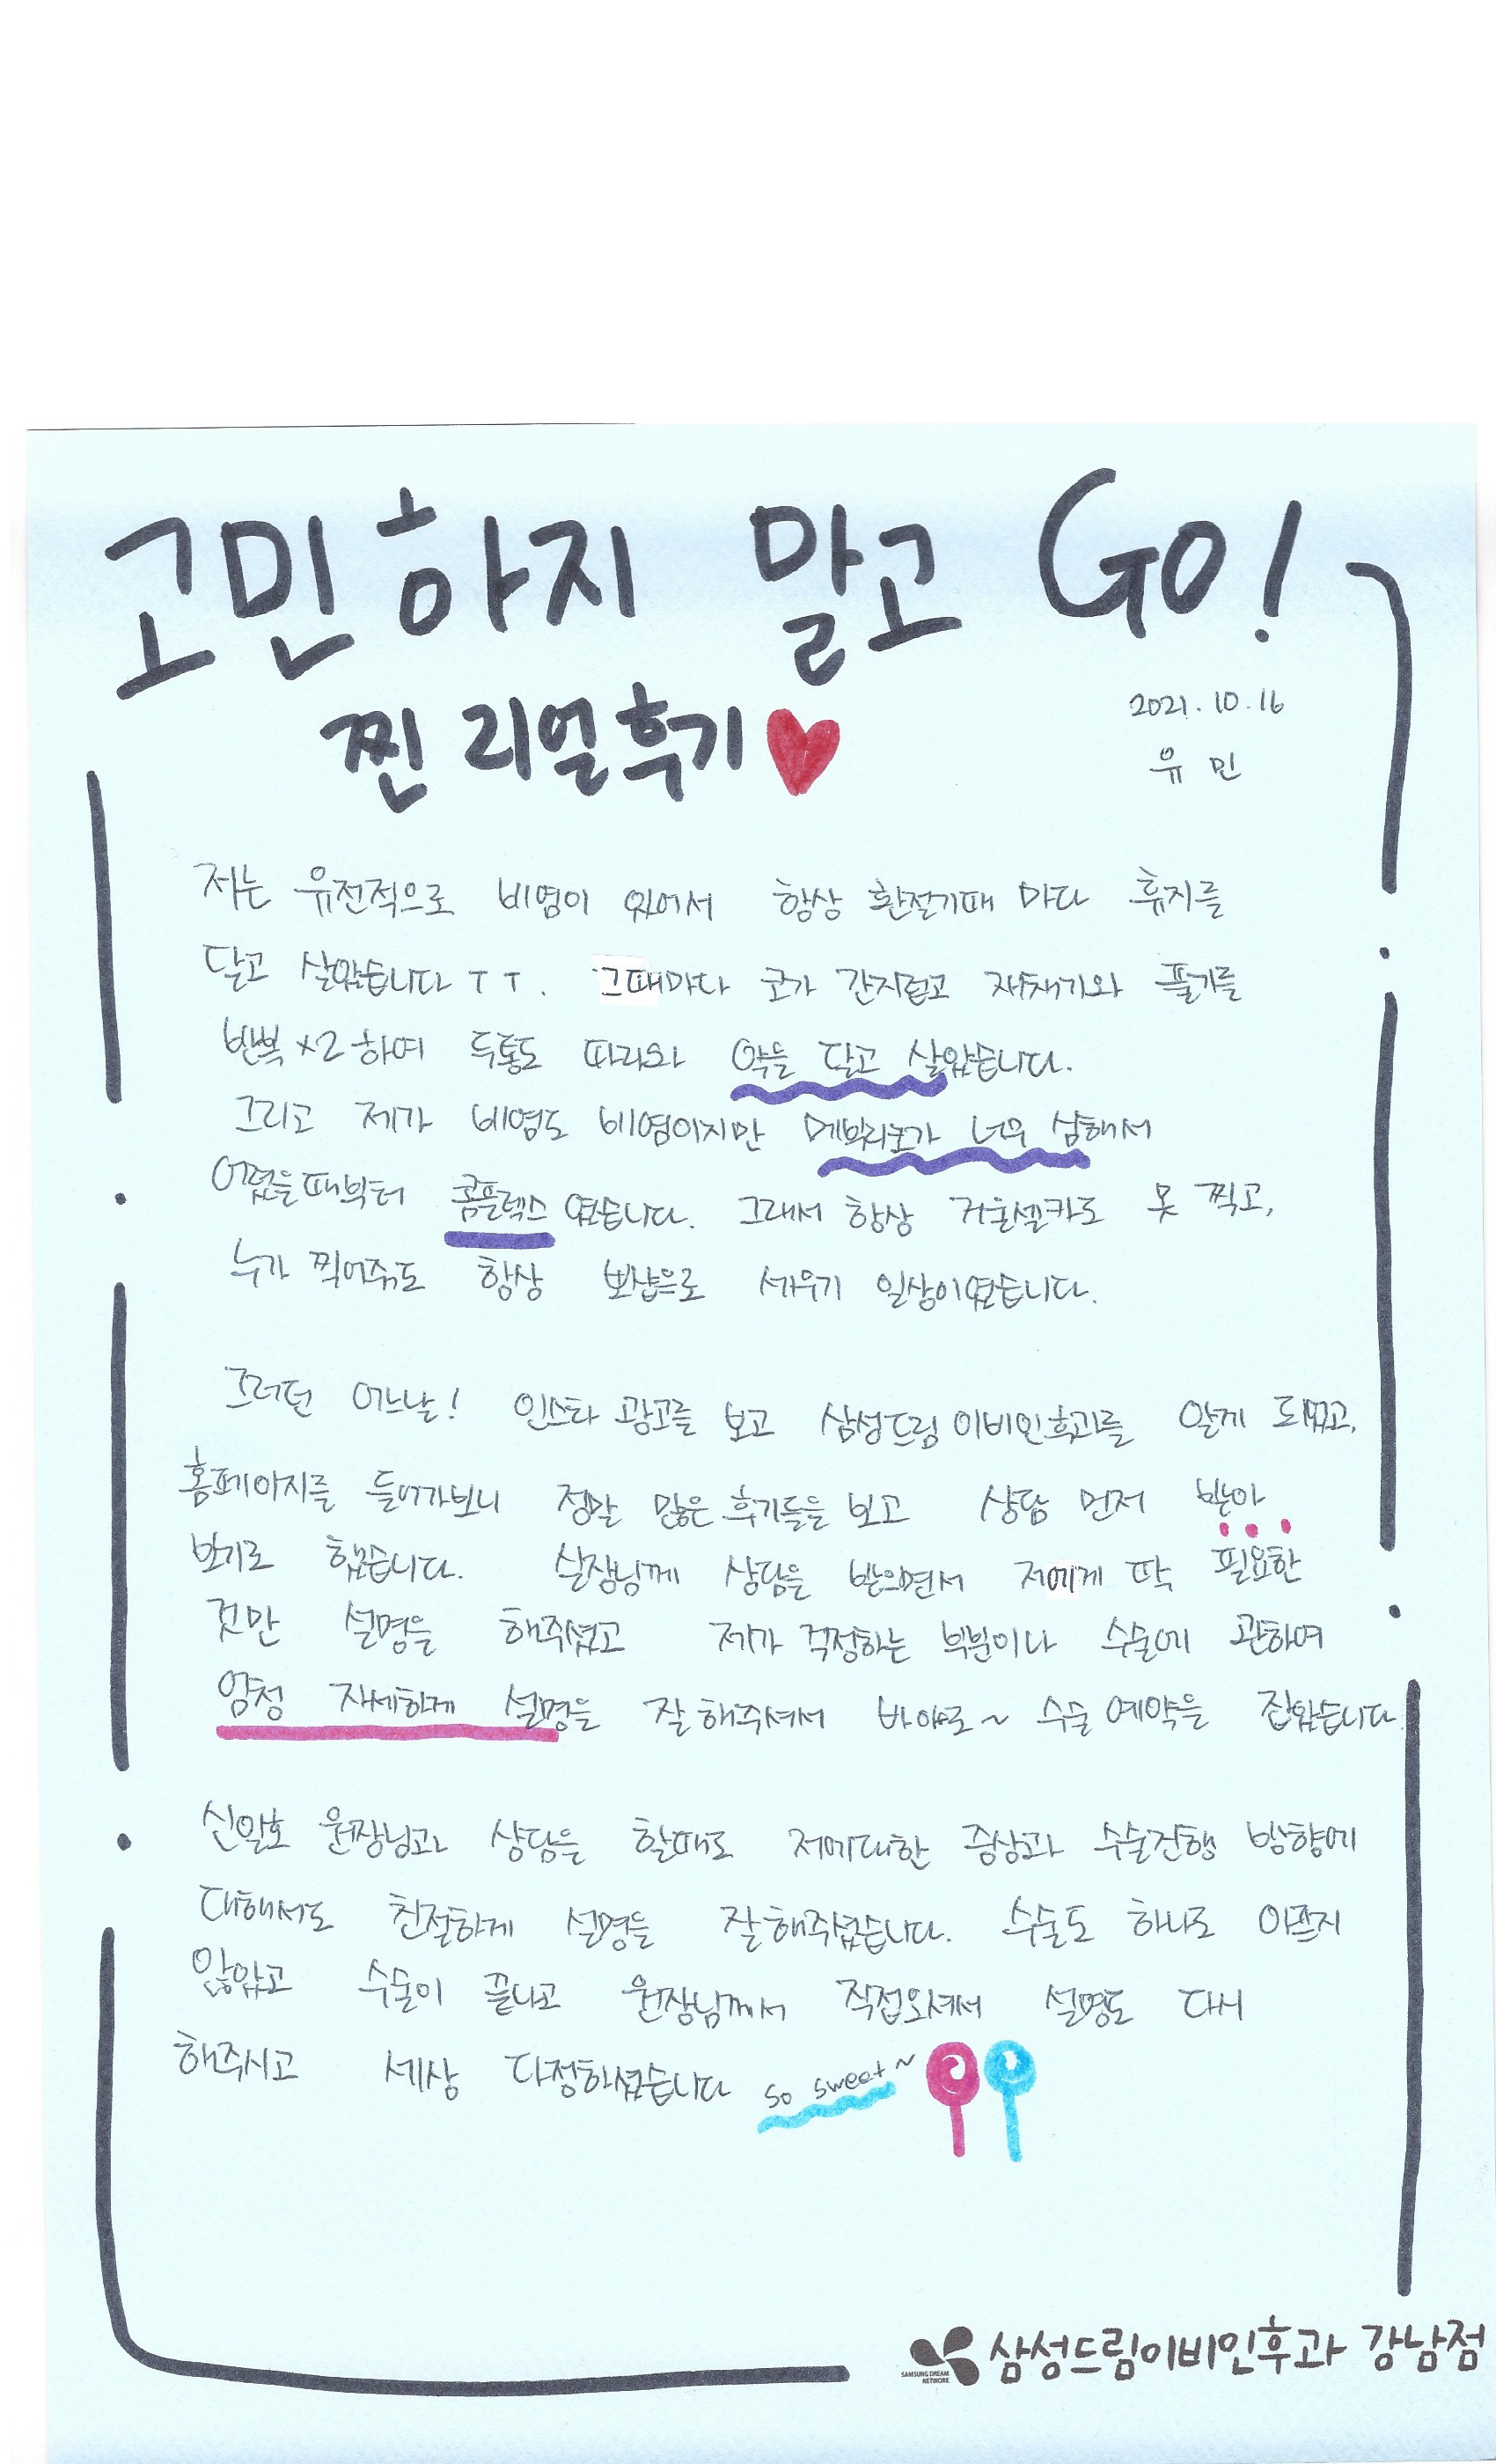 고민하지 말고 GO!
찐 리얼후기
2021.10.16
유민
저는 유전적으로 비염이 있어서 항상 환절기때 마다 휴지를
달고 살았습니다 ㅜㅜ. 그때마다 코가 간지럽고 재채기와 풀기를
반복 x2 하여 두통도 따라와 약을 달고 살았습니다.
그리고 제가 비염도 비염이지만 메부리코가 너무 심해서
어렸을때부터 콤플렉스 였습니다. 그래서 항상 거울셀카도 못 찍고,
누가 찍어줘도 항상 뽀샵으로 세우기 일상이였습니다.
그러던 어느날! 인스타 광고를 보고 삼성드림 이비인후과를 알게 되었고,
홈페이지를 들어가보니 정말 많은 후기들을 보고 상담 먼저 받아
보기로 했습니다. 실장님께 상담을 받으면서 저에게 딱 필요한
것만 설명을 해주셨고 제가 걱정하는 부분이나 수술에 관하여
엄청 자세하게 설명을 잘 해주셔서 바아로~ 수술 예약을 잡았습니다.
신일호 원장님과 상담을 할때도 저에대한 증상과 수술진행 방향에
대해서도 친절하게 설명을 잘해주셨습니다. 수술도 하나도 아프지
않았고 수술이 끝나고 원장님께서 직접오셔서 설명도 다시
해주시고 세상 다정하셨습니다 so sweet~
SAMSUNG DREAM
NETWORK
삼성드림이비인후과 강남점